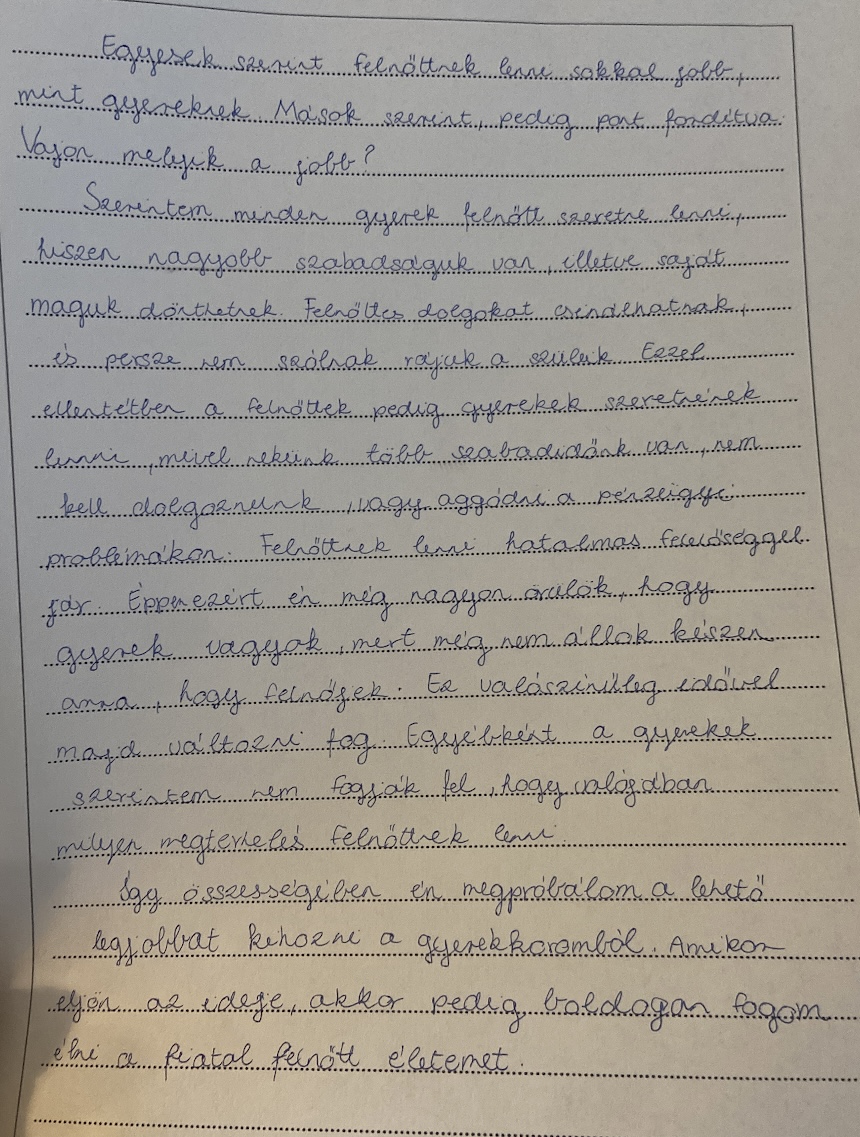 Egyesek szerint felnőttnek lenni sokkal jobb,
mint gyereknek. Mások szerint, pedig pont fordítva.
Vajon melyik a jobb?
Szerintem minden gyerek felnőtt szeretne lenni,
hiszen nagyobb szabadságuk van, illetve saját
maguk dönthetnek. Felnőttes dolgokat csinálhatnak,
és persze nem szólnak rájuk a szüleik. Ezzel
ellentétben a felnőttek pedig gyerekek szeretnének
lenni, mivel nekünk több szabadidőnk van, nem
kell dolgoznunk, vagy aggódni a pénzügyi
problémákon. Felnőttnek lenni hatalmas felelőséggel
jár. Éppen ezért én még nagyon örülök, hogy
gyerek vagyok, mert még nem állok készen
arra, hogy felnőjek. Ez valószínűleg idővel
majd változni fog. Egyébként a gyerekek
szerintem nem fogják fel, hogy valójában
milyen megterhelés felnőttnek lenni.
Így összességében én megpróbálom a lehető
legjobbat kihozni a gyerekkoromból. Amikor
eljön az ideje, akkor pedig boldogan fogom
élni a fiatal felnőtt életemet.